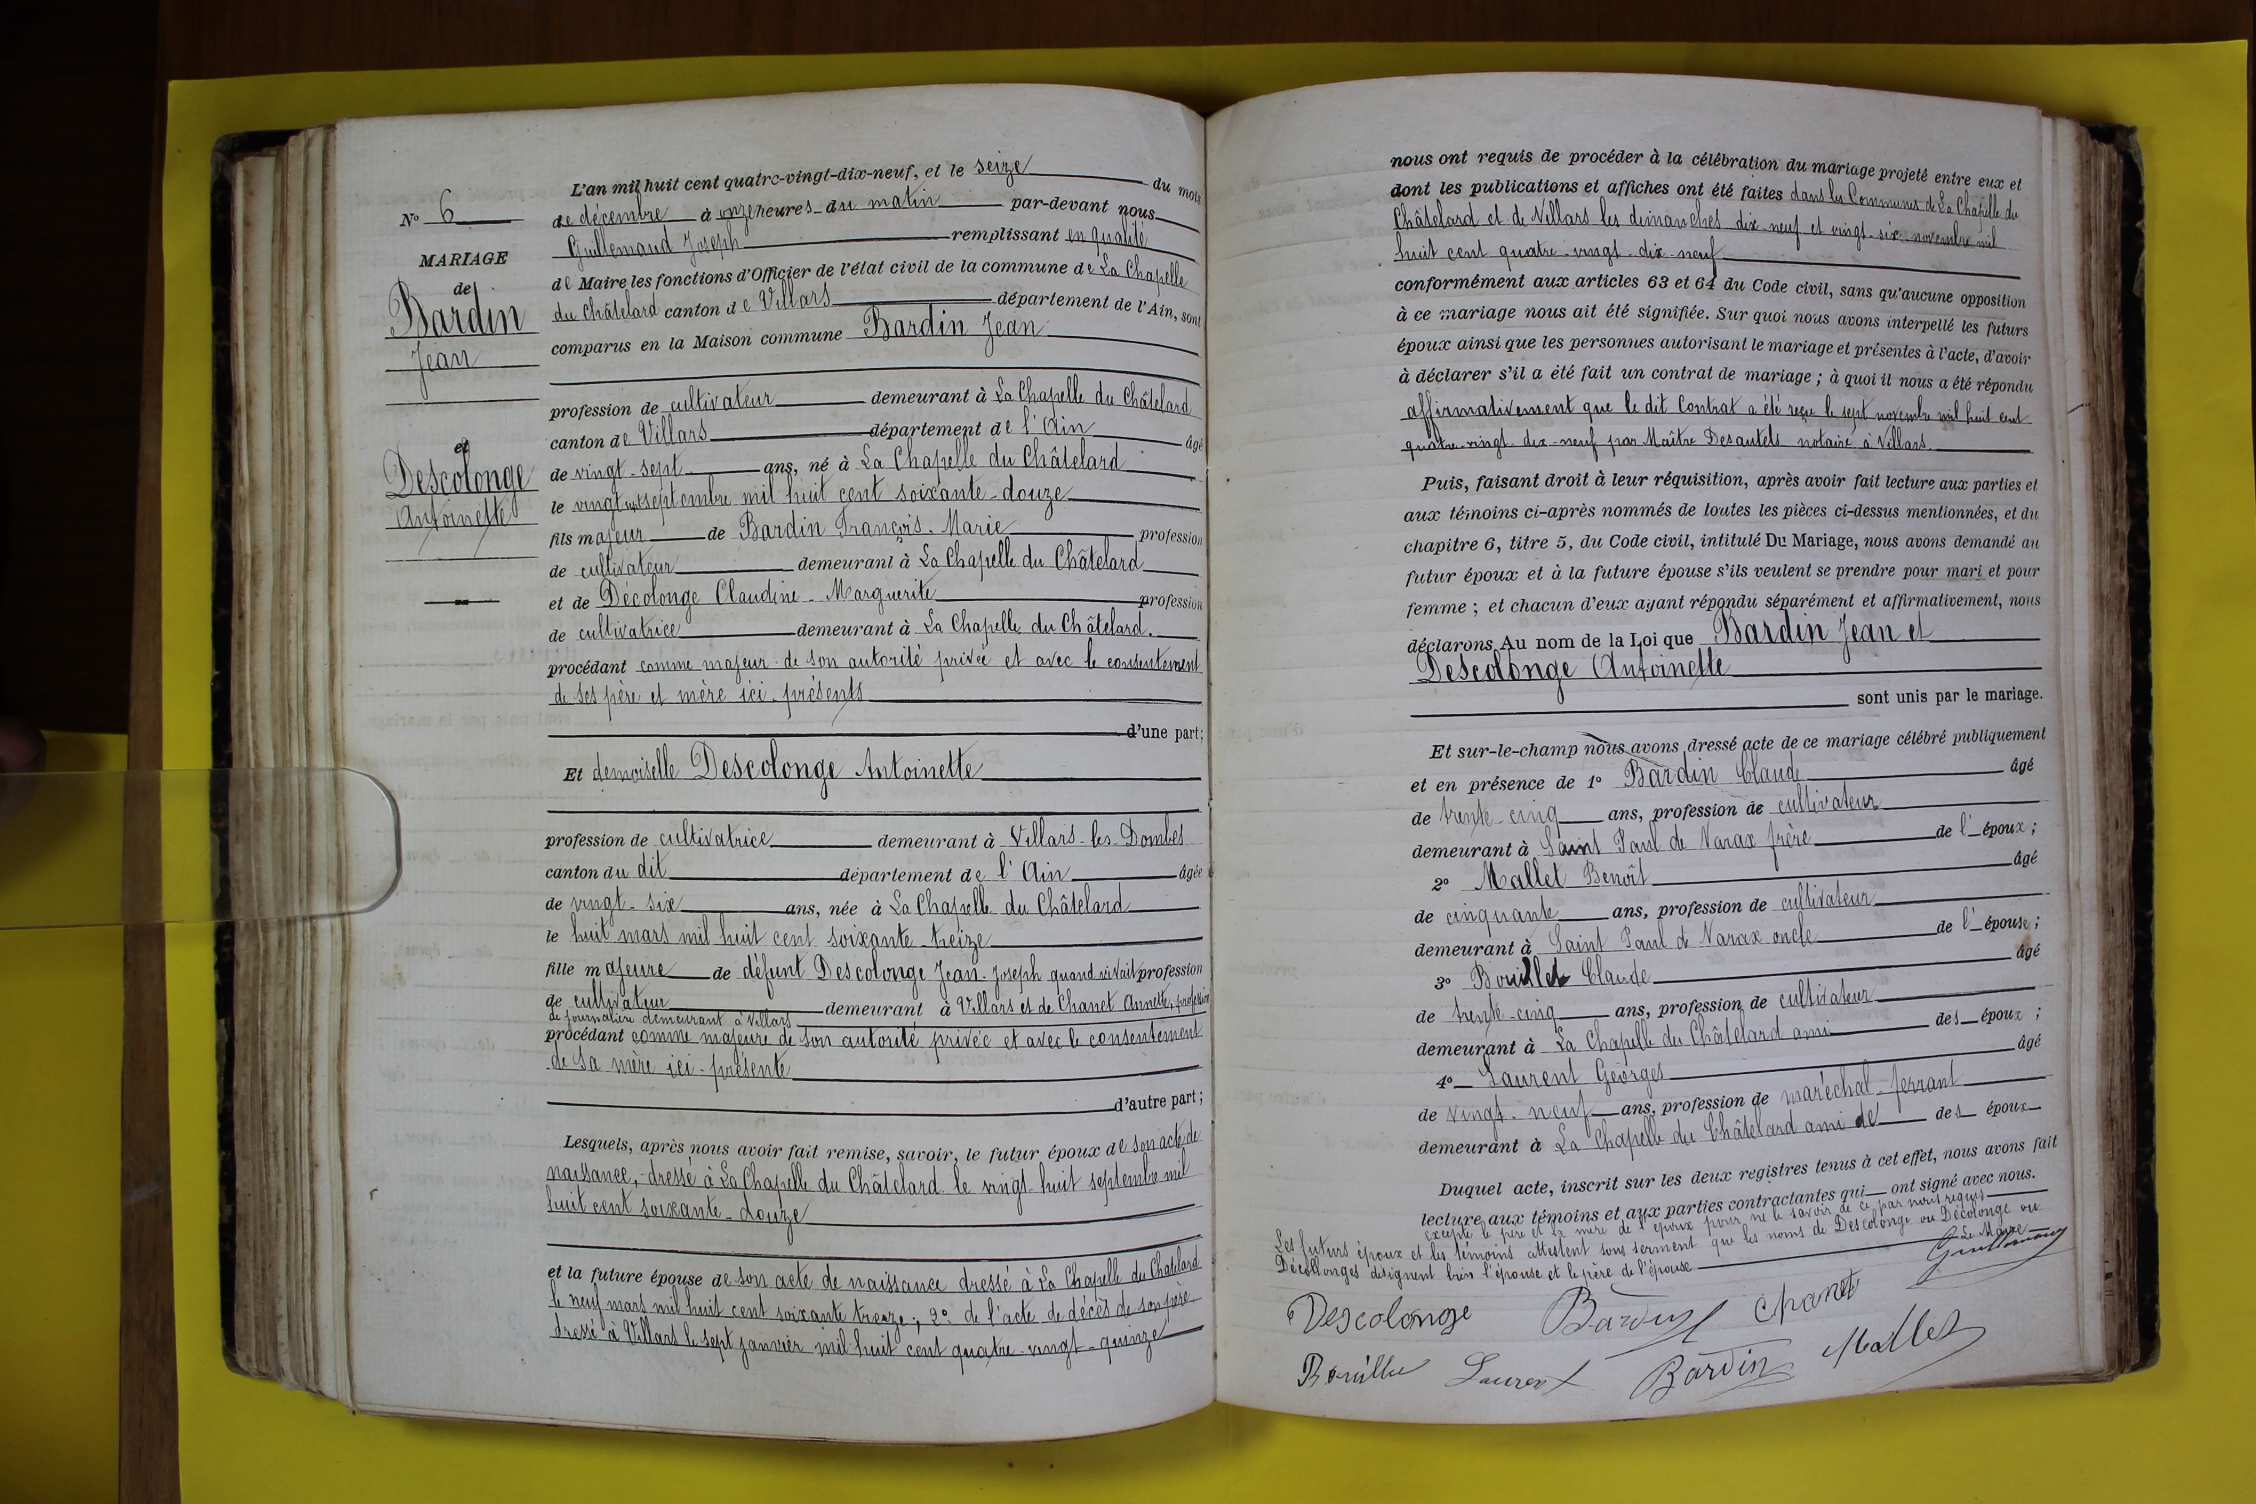 L'an mil huit cent quatre-vingt-dix-neuf, et le seize du mois
de décembre à onze heures du matin par-devant nous
Guillemaud Joseph remplissant en qualité
de Maire les fonctions d'Officier de l'état civil de la commune de La Chapelle
du Châtelard canton de Villars département de l'Ain, sont
comparus en la Maison commune Bardin Jean
profession de cultivateur demeurant à La Chapelle du Châtelard
canton de Villars département de l'Ain âgé
de vingt-sept ans, né à La Chapelle du Châtelard
le vingt septembre mil huit cent soixante-douze
fils majeur de Bardin François-Marie profession
de cultivateur demeurant à La Chapelle du Châtelard
et de Décolonge Claudine-Marguerite profession
de cultivatrice demeurant à La Chapelle du Châtelard.
procédant comme majeur de son autorité privée et avec le consentement
de ses père et mère ici présents
d'une part;
Et demoiselle Descolonge Antoinette
profession de cultivatrice demeurant à Villars-les-Dombes
canton du dit département de l'Ain âgée
de vingt-six ans, née à La Chapelle du Châtelard
le huit mars mil huit cent soixante-treize
fille majeure de défunt Descolonge Jean-Joseph quand vivait profession
de cultivateur demeurant à Villars et de Chanet Annette, profession
de journalière demeurant à Villars
procédant comme majeure de son autorité privée et avec le consentement
de sa mère ici présente
d'autre part;
Lesquels, après nous avoir fait remise, savoir, le futur époux de son acte de
naissance, dressé à La Chapelle du Châtelard le vingt-huit septembre mil
huit cent soixante-douze
et la future épouse de son acte de naissance dressé à La Chapelle du Chatelard
le neuf mars mil huit cent soixante treize; 2° de l'acte de décès de son père
dressé à Villars le sept janvier mil huit cent quatre-vingt-quinze
N° 6
MARIAGE
de
Bardin
Jean
et
Descolonge
Antoinette
nous ont requis de procéder à la célébration du mariage projeté entre eux et
dont les publications et affiches ont été faites dans les Communes de La Chapelle du
Châtelard et de Villars les dimanches dix-neuf et vingt-six novembre mil
huit cent quatre-vingt-dix-neuf
conformément aux articles 63 et 64 du Code civil, sans qu'aucune opposition
à ce mariage nous ait été signifiée. Sur quoi nous avons interpellé les futurs
époux ainsi que les personnes autorisant le mariage et présentes à l'acte, d'avoir
à déclarer s'il a été fait un contrat de mariage; à quoi il nous a été répondu
affirmativement que le dit Contrat a été reçu le sept novembre mil huit cent
quatre-vingt-dix-neuf par Maître Desautels notaire à Villars.
Puis, faisant droit à leur réquisition, après avoir fait lecture aux parties et
aux témoins ci-après nommés de toutes les pièces ci-dessus mentionnées, et du
chapitre 6, titre 5, du Code civil, intitulé Du Mariage, nous avons demandé au
futur époux et à la future épouse s'ils veulent se prendre pour mari et pour
femme; et chacun d'eux ayant répondu séparément et affirmativement, nous
déclarons Au nom de la Loi que Bardin Jean et
Descolonge Antoinette
sont unis par le mariage.
Et sur-le-champ nous avons dressé acte de ce mariage célébré publiquement
et en présence de 1° Bardin Claude âgé
de trente-cinq ans, profession de cultivateur
demeurant à Saint Paul de Varax frère de l'époux;
2° Mallet Benoît âgé
de cinquante ans, profession de cultivateur
demeurant à Saint Paul de Varax oncle de l'épouse;
3° Bouillet Claude âgé
de trente-cinq ans, profession de cultivateur
demeurant à La Chapelle du Châtelard ami des époux;
4° Laurent Georges âgé
de vingt-neuf ans, profession de maréchal-ferrant
demeurant à La Chapelle du Châtelard ami de des époux
Duquel acte, inscrit sur les deux registres tenus à cet effet, nous avons fait
lecture aux témoins et aux parties contractantes qui ont signé avec nous.
excepté le père et la mère de l'époux pour ne le savoir de ce par nous requis
Les futurs époux et les témoins attestent sous serment que les noms de Descolonge ou Décolonge ou
Décollonges désignent bien l'épouse et le père de l'épouse
Le Maire
Guillemaud
Descolonge Bardin Chanet
Bouillet Laurent Bardin Mallet